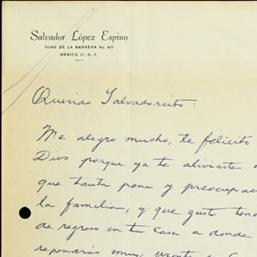 Salvador López Espino
JUAN DE LA BARRERA No. 65
MÉXICO 11, D. F.
Querido Salvadorcito:
Me alegro mucho, te felicito
Dios porque ya te aliviaste
que tanta pena y preocupac
la familia, y que gusto
de regreso en tu casa a donde
repondrás muy pronto